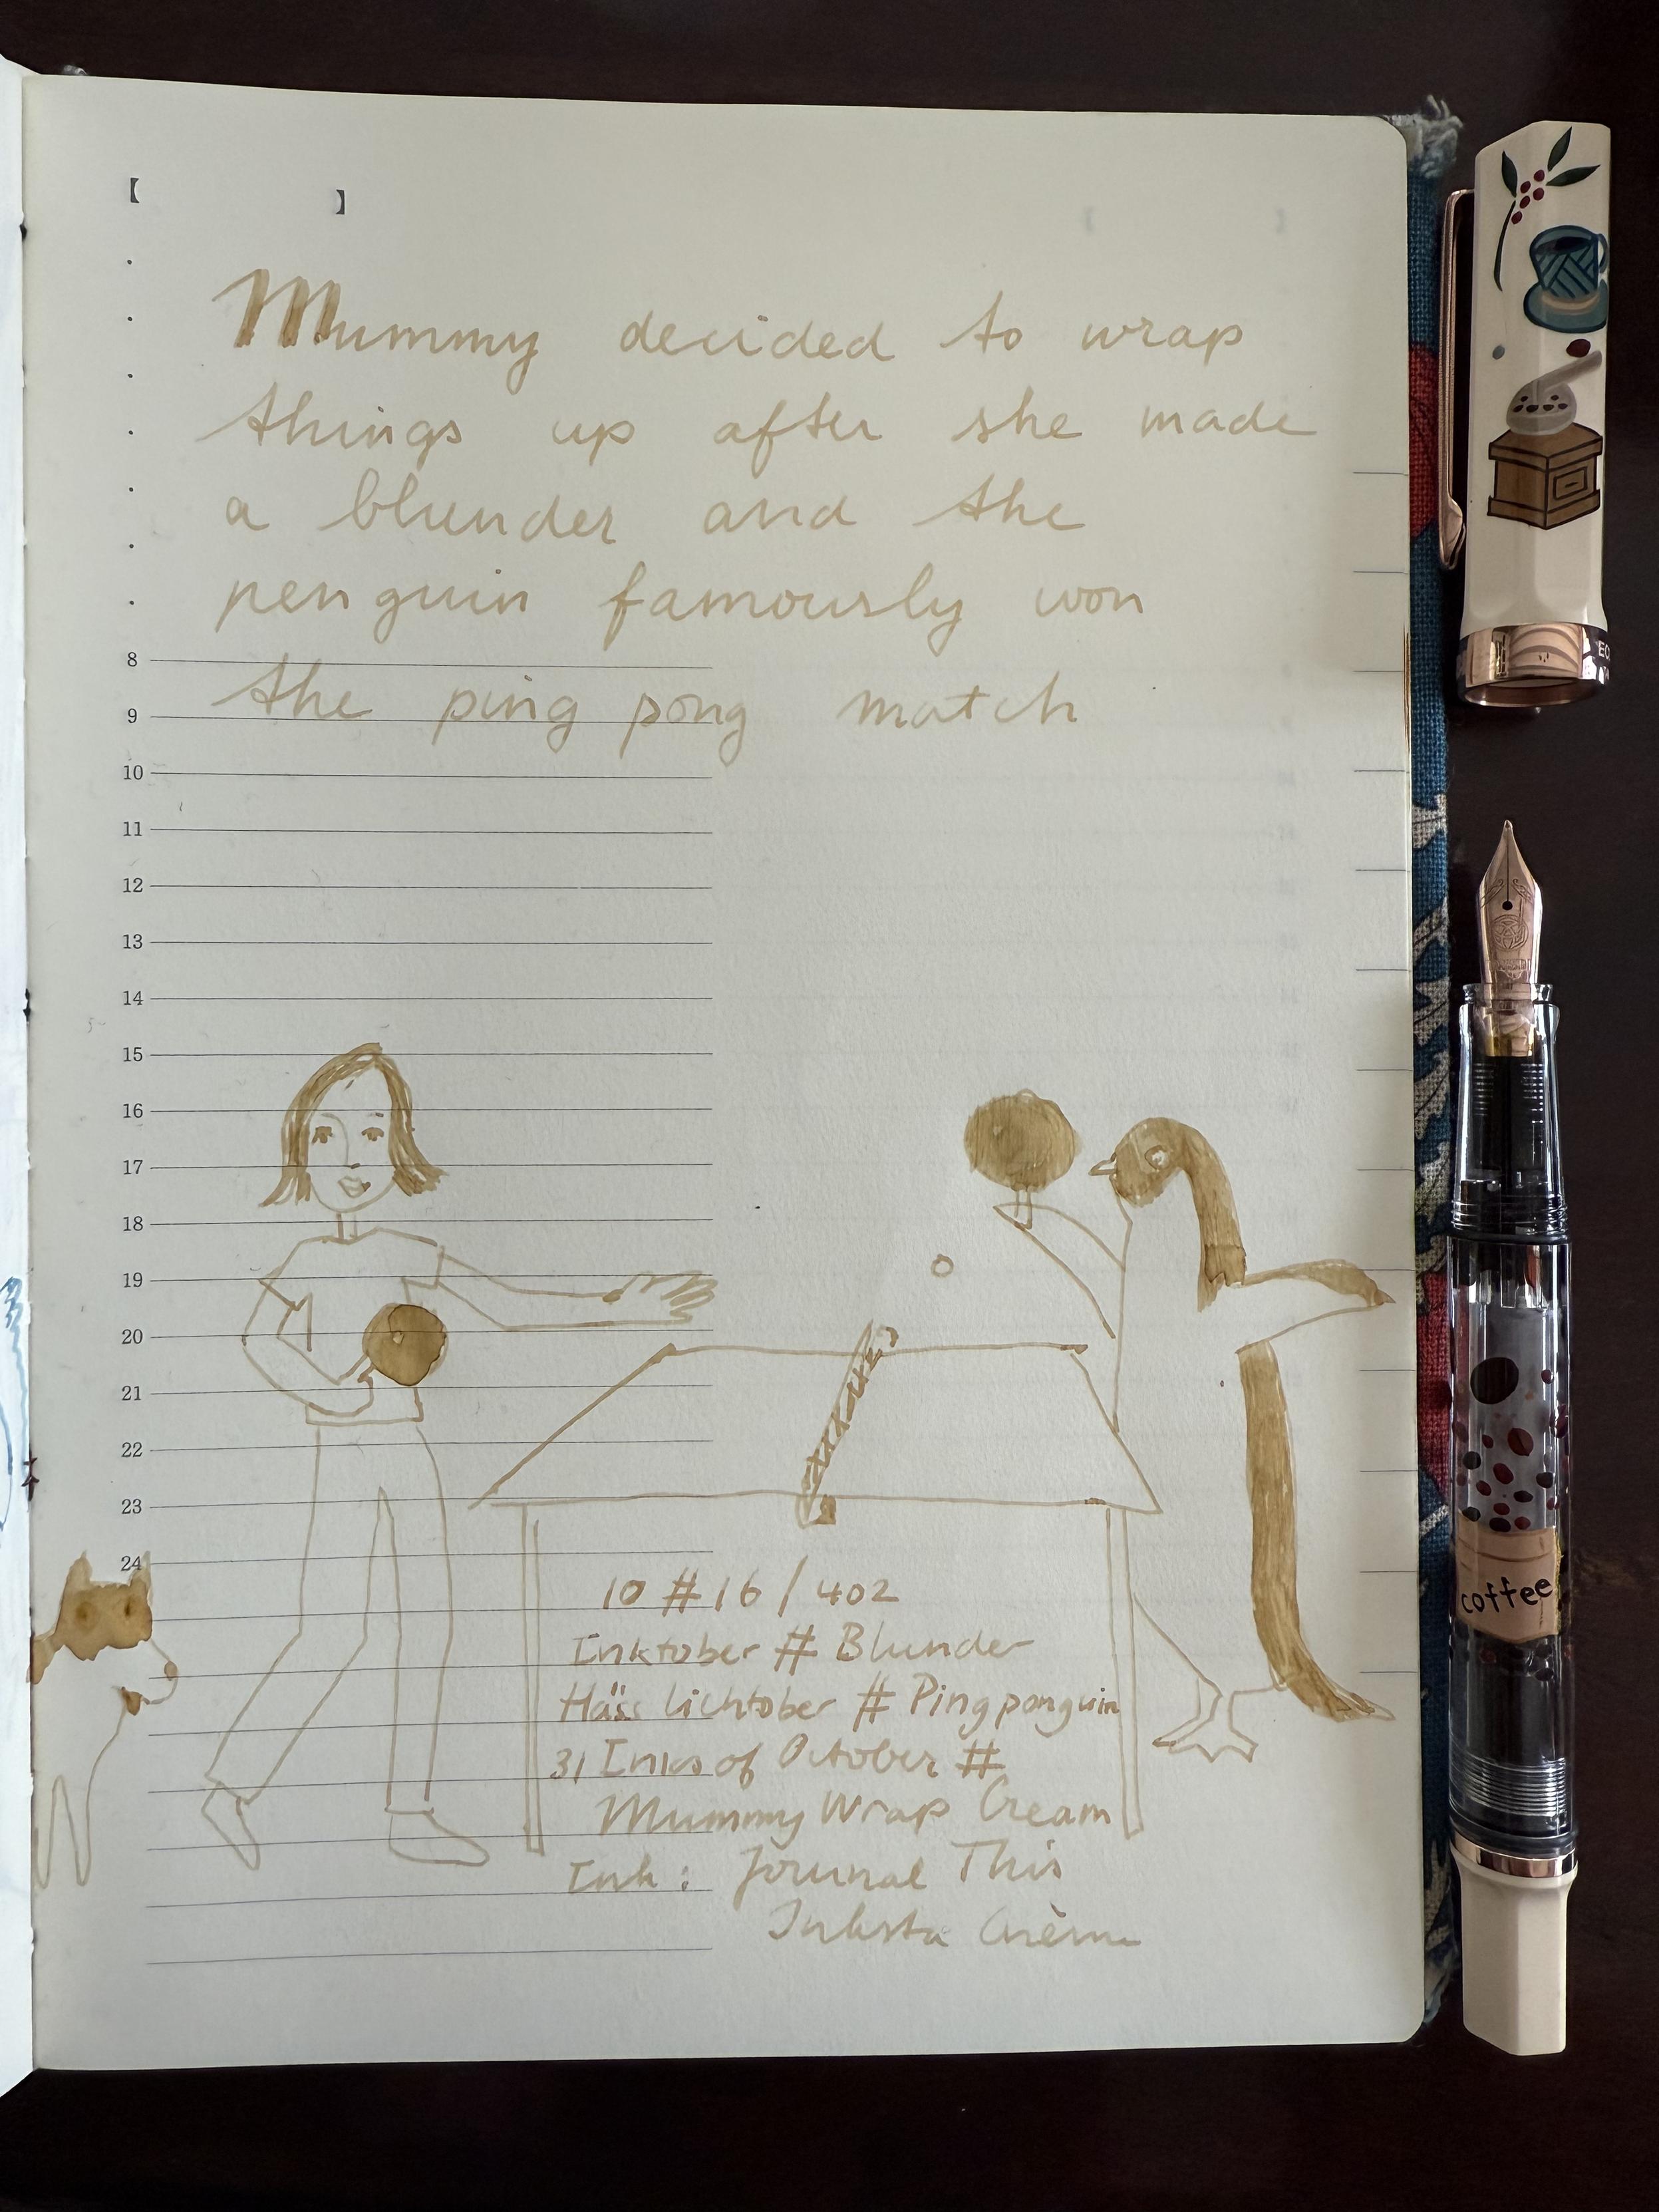 【 】
Mummy decided to wrap
things up after she made
a blunder and the
penguin famously won
the ping pong match
8
9
10
11
12
13
14
15
16
17
18
19
20
21
22
23
24
10 # 16 / 402
Inktober # Blunder
Hässlichtober # Pingponguin
31 Inks of October #
Mummy Wrap Cream
Ink: Journal This
Inksta Crème
coffee